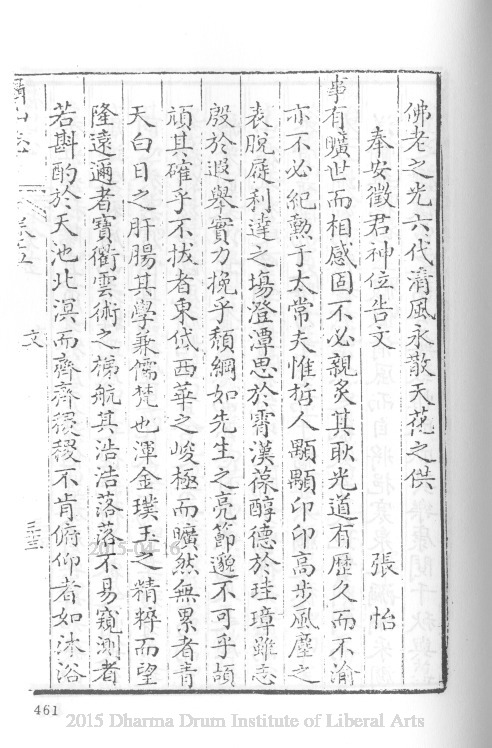 佛老之光六代清風永散天花之供
奉安徵君神位告文 張怡
事有曠世而相感固不必親炙其耿光道有歷久而不渝
亦不必紀勲于太常夫惟哲人顒顒卬卬高步風塵之
表脫屣利達之場澄潭思於霄漢葆醇德於珪璋雖志
殷於遐舉實力挽乎頹綱如先生之亮節邈不可乎頡
頏其確乎不拔者東岱西華之峻極而曠然無累者青
天白日之肝腸其學兼儒梵也渾金璞玉之精粹而望
隆遠邇者寶衢雲術之梯航其浩浩落落不易窺測者
若斟酌於天池北溟而齊齊稷稷不肯俯仰者如沐浴
山志
卷五
文
三三
461
2015-04-16
2015 Dharma Drum Institute of Liberal Arts